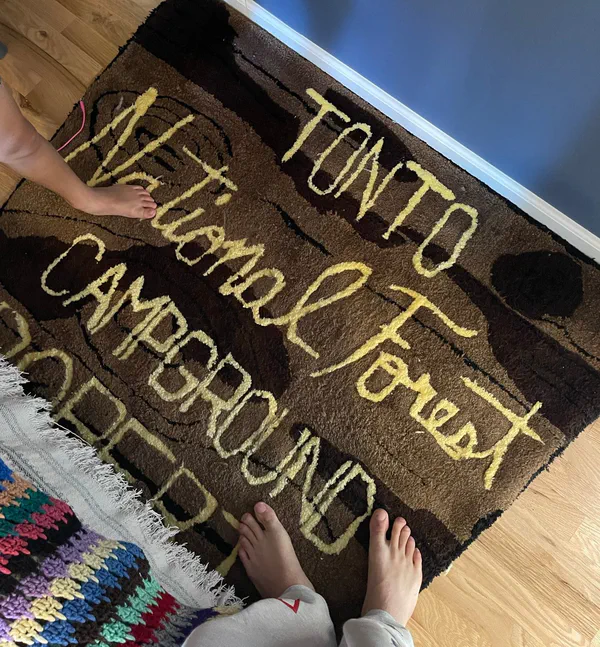 TONTO
National Forest
CAMPGROUND